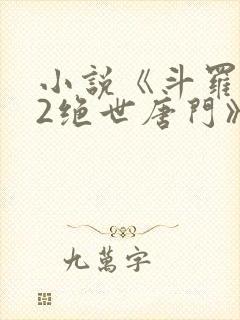 小説《斗羅
2绝世唐門》
九萬字